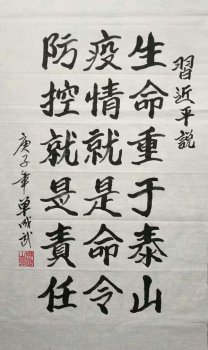 習近平説
生命重于泰山
疫情就是命令
防控就是責任
庚子年單成武